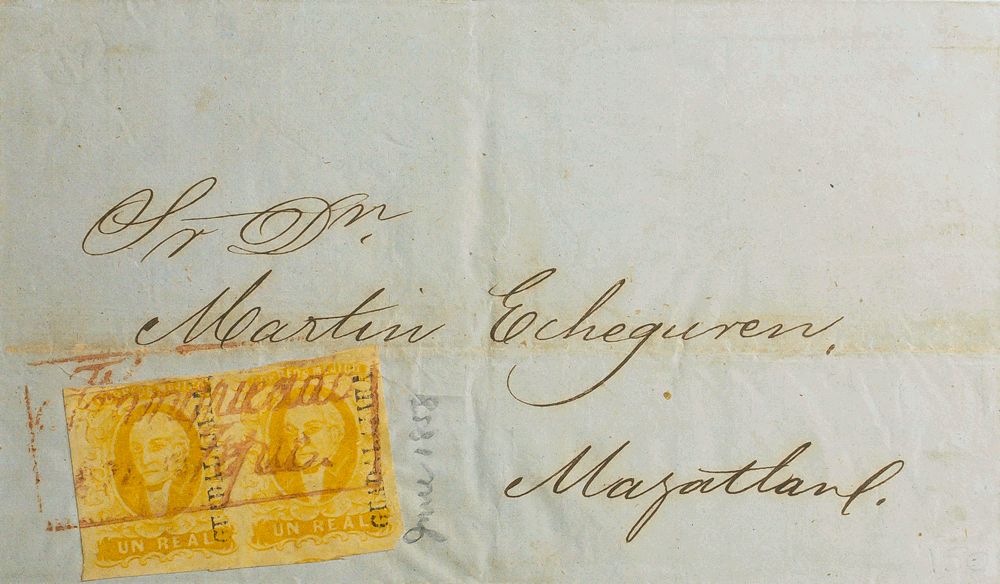 Sr Dn.
Martin Echeguren,
Mazatlan.
UN REAL
UN REAL
GUADALAJARA
GUADALAJARA
June 1858